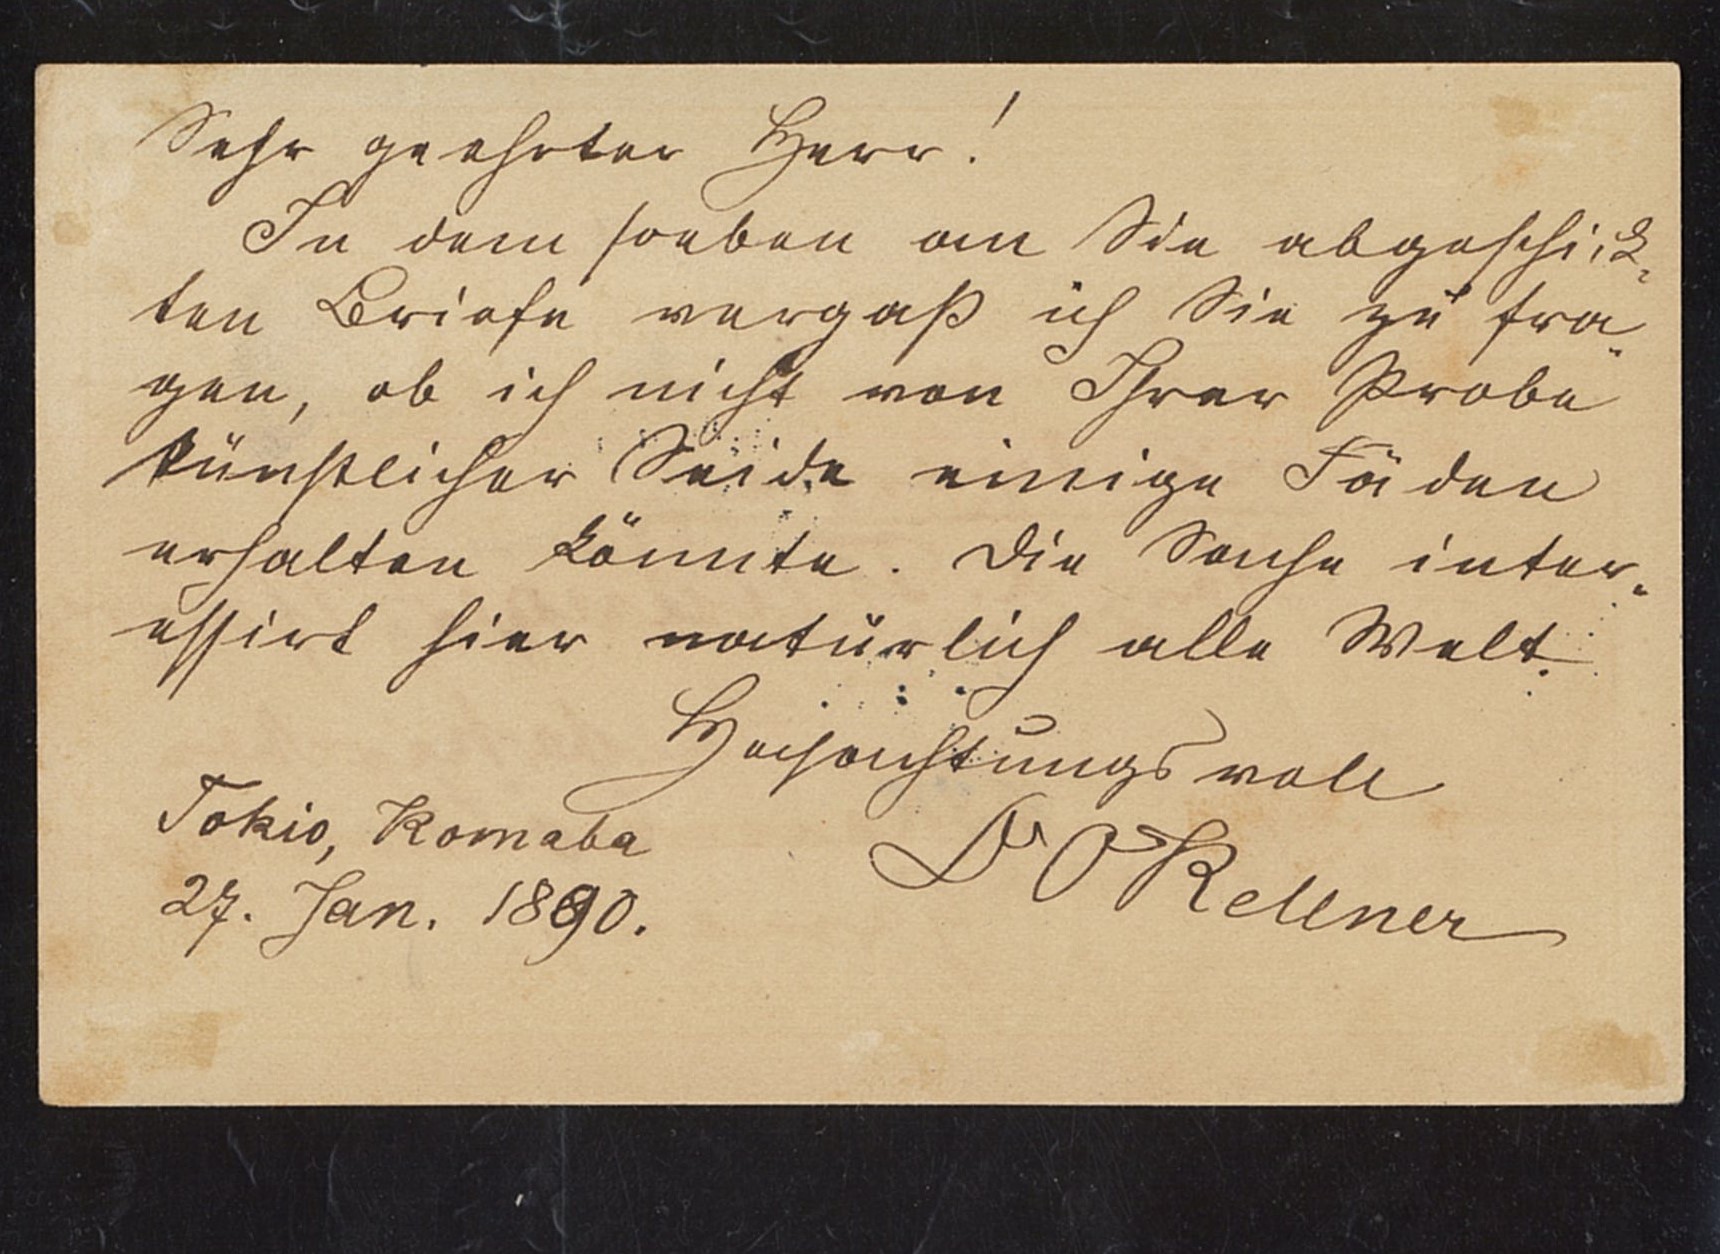 Sehr geehrter Herr!
In dem soeben an Sie abgeschick-
ten Briefe vergaß ich Sie zu fra-
gen, ob ich nicht von Ihrer Probe
künstlicher Seide einige Fäden
erhalten könnte. Die Sache inter-
essirt hier natürlich alle Welt.
Hochachtungsvoll
Tokio, Komaba
27. Jan. 1890.
Dr O Kellner